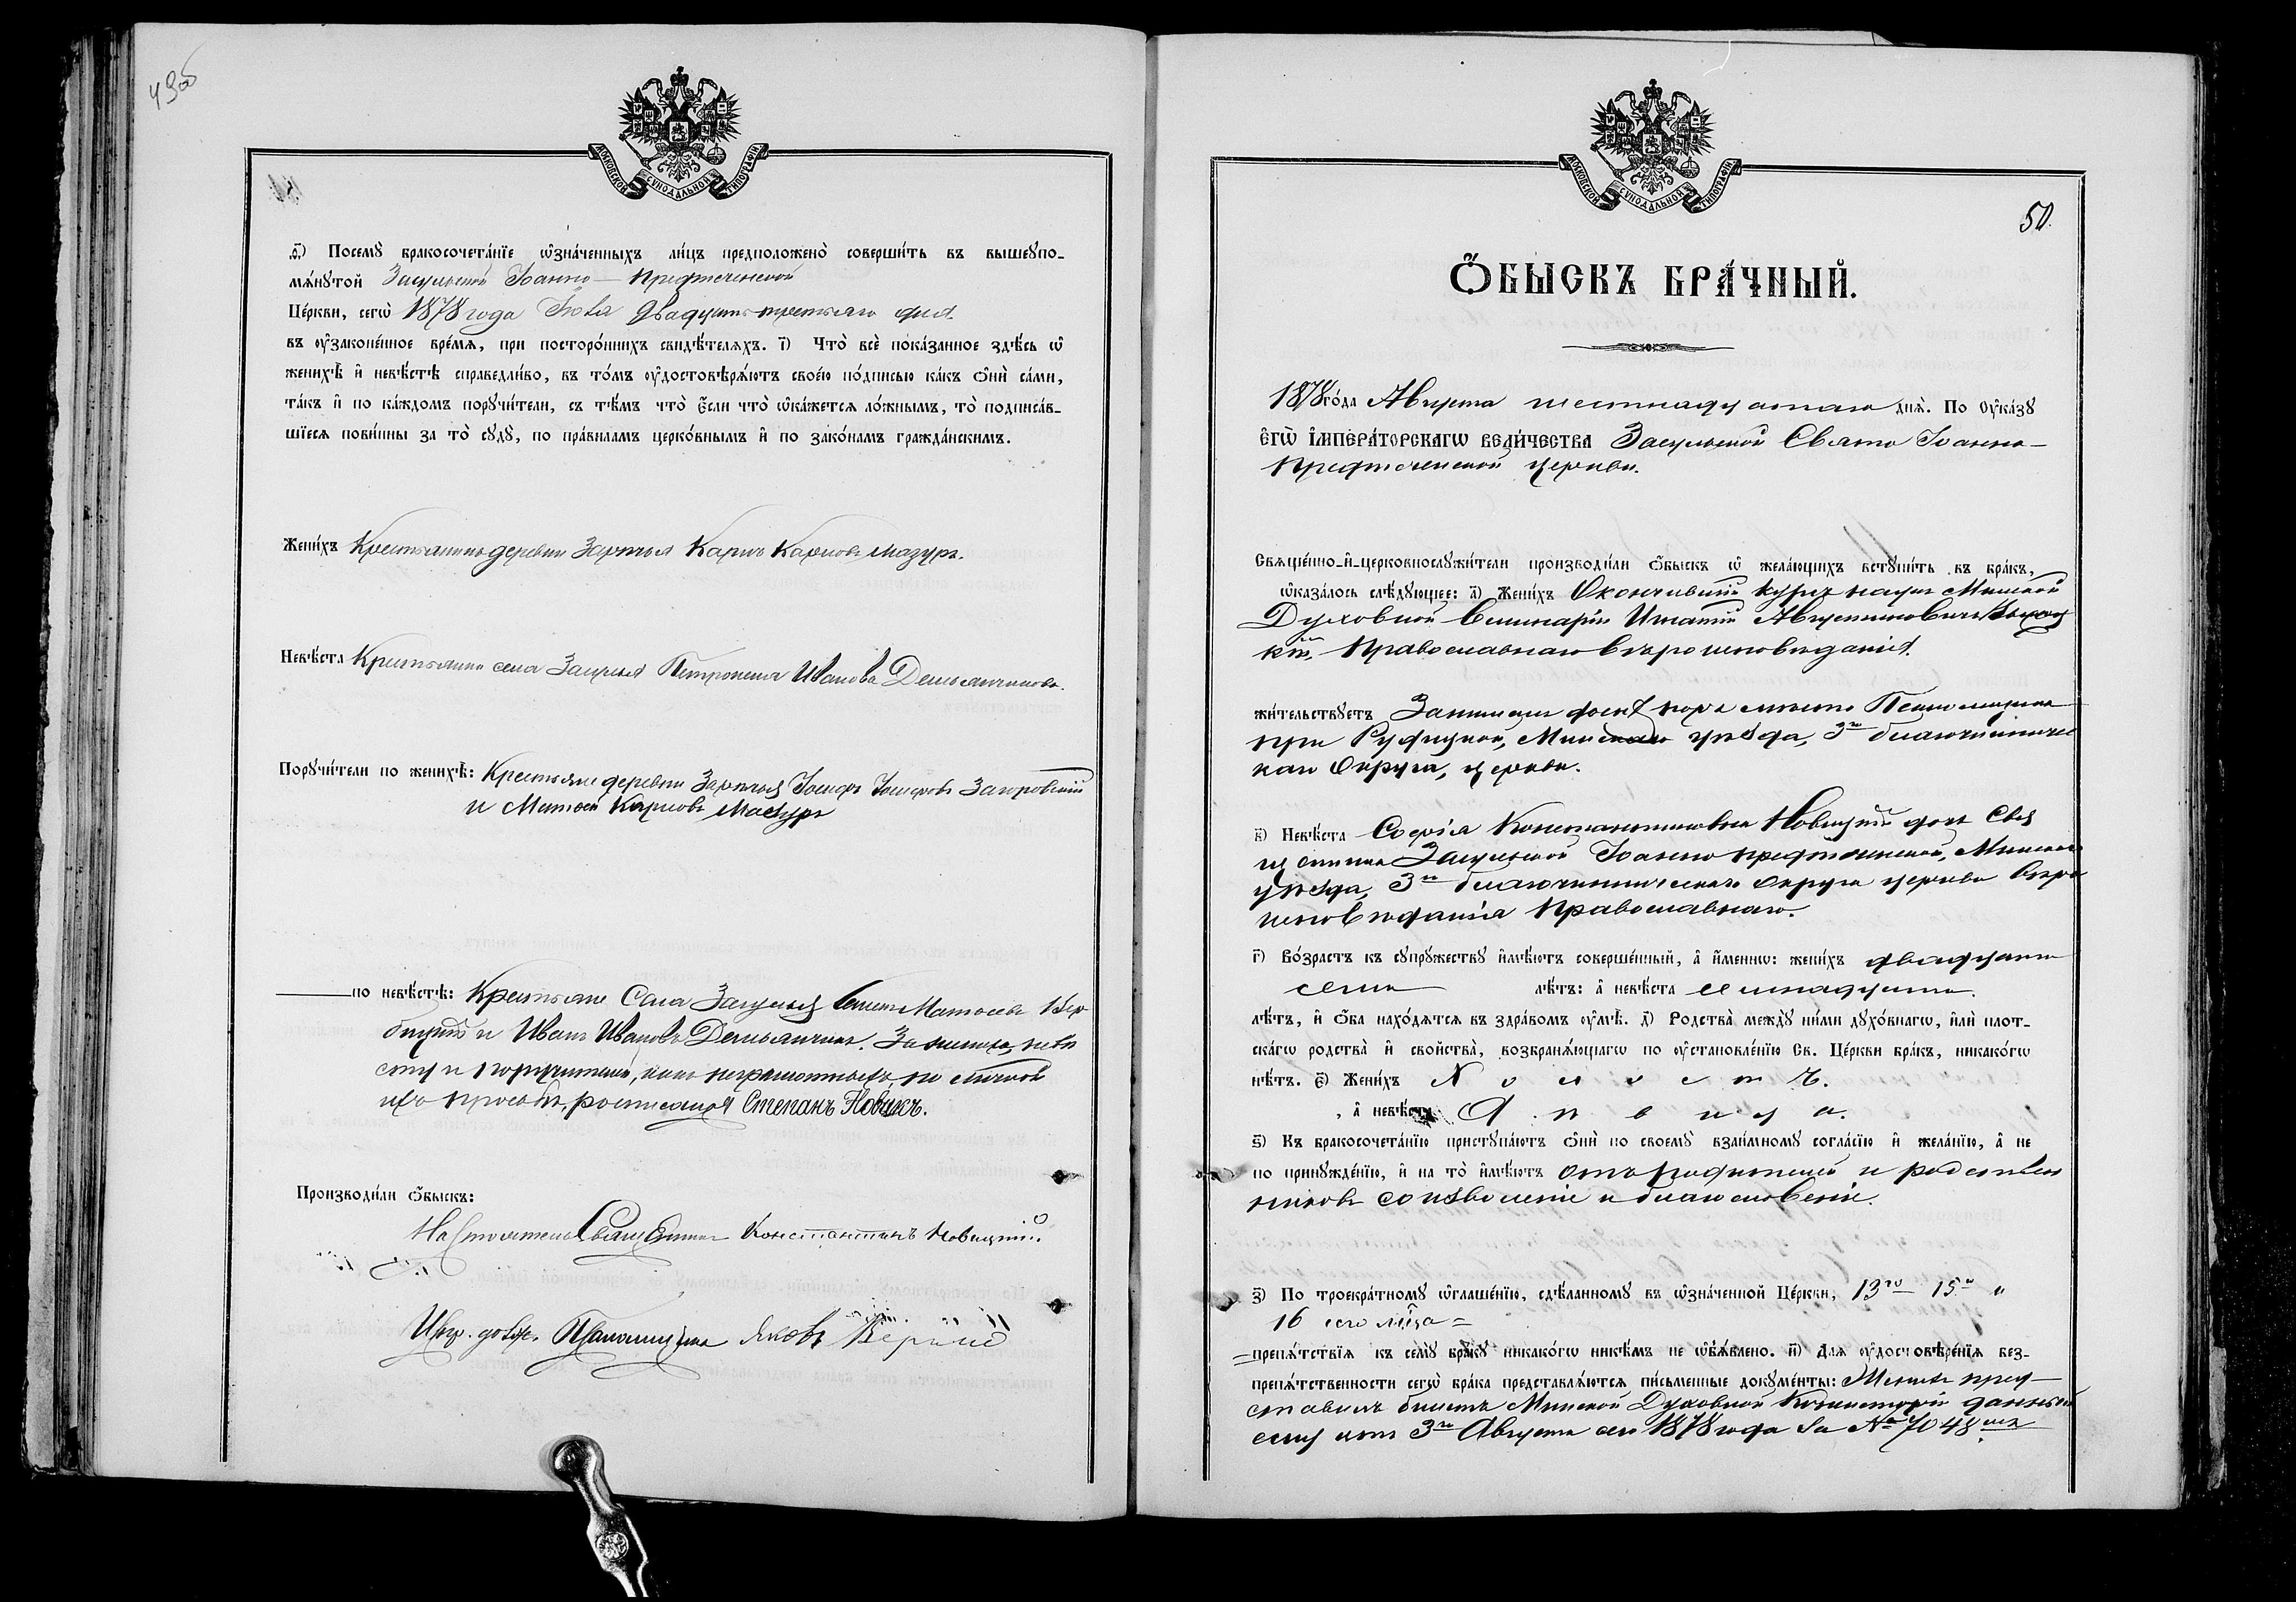 49об
МОСКОВСКОЙ СѴНОДАЛЬНОЙ ТИПОГРАФІИ
ѳ҃) Посемꙋ̀ бракосочета́нїе ѡ҆зна́ченныхъ ли́цъ предположено̀ соверши́ть въ вышеꙋпо-
мѧ́нꙋтой Засульской Іоанно-Предтеченской
Це́ркви, сегѡ̀ 1878 года двадцать третьяго дня
въ ᲂу҆зако́ненное вре́мѧ, при посторо́ннихъ свидѣ́телѧхъ. і҃) Что̀ всѐ пока́занное здѣ́сь ѡ҆
женихѣ̀ и҆ невѣ́стѣ справедли́во, въ то́мъ ᲂу҆достовѣрѧ́ютъ свое́ю по́дписью ка́къ ѻ҆нѝ са́ми,
та́къ и҆ по ка́ждомъ порꙋчи́тели, съ тѣ́мъ что̀ є҆́сли что̀ ѡ҆ка́жетсѧ ло́жнымъ, то̀ подписа́в-
шїесѧ пови́нны за то̀ сꙋдꙋ̀, по пра́виламъ церко́внымъ и҆ по зако́намъ гражда́нскимъ.
Жени́хъ Крестьянинъ деревни Карпъ Карповъ Мазуръ.
Невѣ́ста Крестьянка села Засулья Петронеля Иванова Демьянчикова.
Порꙋчи́тели по женихѣ̀: Крестьяне деревни Іосифъ Іосифовъ Загоровскій
и Матвей Карповъ Мазуръ
по невѣ́стѣ: Крестьяне Села Засулья Матвеевъ Вер-
бицкій и Иванъ Ивановъ Демьянчикъ. За жениха, неве
сту и поручителей, какъ неграмотныхъ, по личной
ихъ просьбѣ, росписался Степанъ Новикъ.
Производи́ли ѻ҆́быскъ:
Настоятель Священникъ Константинъ Новицкій.
Псаломщика Яковъ
МОСКОВСКОЙ СѴНОДАЛЬНОЙ ТИПОГРАФІИ
50.
Ѻ҆́БЫСКЪ БРА́ЧНЫЙ.
1878 го́да Августа шестнадцатаго днѧ̀. По ᲂу҆ка́зꙋ
Є҆ГѠ̀ И҆МПЕРА́ТОРСКАГѠ ВЕЛИ́ЧЕСТВА Засульской Свято Іоанно-
Предтеченской церкви.
Сващє́нно-и҆-церковнослꙋжи́тели производи́ли ѻ҆́быскъ ѡ҆ жела́ющихъ встꙋпи́ть въ бра́къ,
ѡ҆каза́лось слѣ́дꙋющее: а҃) Жени́хъ Окончившій курсъ наукъ Минской
Духовной Семинаріи Игнатій Августиновичъ
кій, Православнаго вѣроисповѣданія.
жи́тельствꙋетъ мѣсто Псаломщика
при Рудицкой, Минскаго уѣзда, 3го благочинничес
каго округа, церкви.
в҃) Невѣ́ста Софія Константиновна Новицкій дочь Свя
щенника Засульской Іоанно предтеченской, Минскаго
уѣзда, 3го благочинническаго округа церкви вѣро
исповѣданія Православнаго.
г҃) Во́зрастъ къ сꙋпрꙋ́жествꙋ и҆мѣ́ютъ соверше́нный, а҆ и҆́меннѡ: жени́хъ двадцати
семи лѣ́тъ: а҆ невѣ́ста семнадцати.
лѣ́тъ, и҆ ѻ҆́ба нахо́дѧтсѧ въ здра́вомъ ᲂу҆мѣ̀. д҃) Родства̀ междꙋ̀ ни́ми дꙋхо́внагѡ, и҆лѝ плот-
ска́гѡ родства̀ и҆ сво́йства, возбранѧ́ющагѡ по ᲂу҆становле́нїю Св. Це́ркви бра́къ, никако́гѡ
нѣ́тъ. є҃) Жени́хъ Холостъ.
, а҆ невѣ́ста Дѣвица.
ѕ҃) Къ бракосочета́нїю пристꙋпа́ютъ ѻ҆нѝ по своемꙋ̀ взаи́мномꙋ согла́сїю и҆ жела́нїю, а҆ не
по принꙋжде́нїю, и҆ на то̀ и҆мѣ́ютъ отъ родителей и родствен
никовъ соизволеніе и благословеніе.
з҃) По троекра́тномꙋ ѡ҆глаше́нїю, сдѣ́ланномꙋ въ ѡ҆зна́ченной Це́ркви, 13го 15го и
16 сего м҃ца =
препѧ́тствїѧ къ семꙋ̀ бра́кꙋ никако́гѡ никѣ́мъ не ѡ҆бъѧ́влено. и҃) Для ᲂу҆достовѣре́нїѧ без-
препѧ́тственности сегѡ̀ бра́ка представлѧ́ютсѧ пи́сьменные докꙋме́нты: Женихъ пред-
ставилъ билетъ Минской Духовной Консисторіи данный
ему отъ 3го Августа сего 1878 года за № 7048мъ